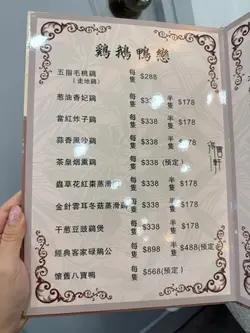 鷄鵝鴨戀
五指毛桃鷄 每隻 $288
(走地鷄)
葱油香妃鷄 每隻 $338 半隻 $178
當紅炸子鷄 每隻 $338 半隻 $178
蒜香風沙鷄 每隻 $338 半隻 $178
茶皇烟熏鷄 每隻 $338 (預定)
蟲草花紅棗蒸滑鷄 每隻 $338 半隻 $178
金針雲耳冬菇蒸滑鷄 每隻 $338 半隻 $178
干葱豆豉鷄煲 每隻 $338 半隻 $178
經典客家碌鵝公 每隻 $898 半隻 $488(預定)
懷舊八寶鴨 每隻 $568(預定)